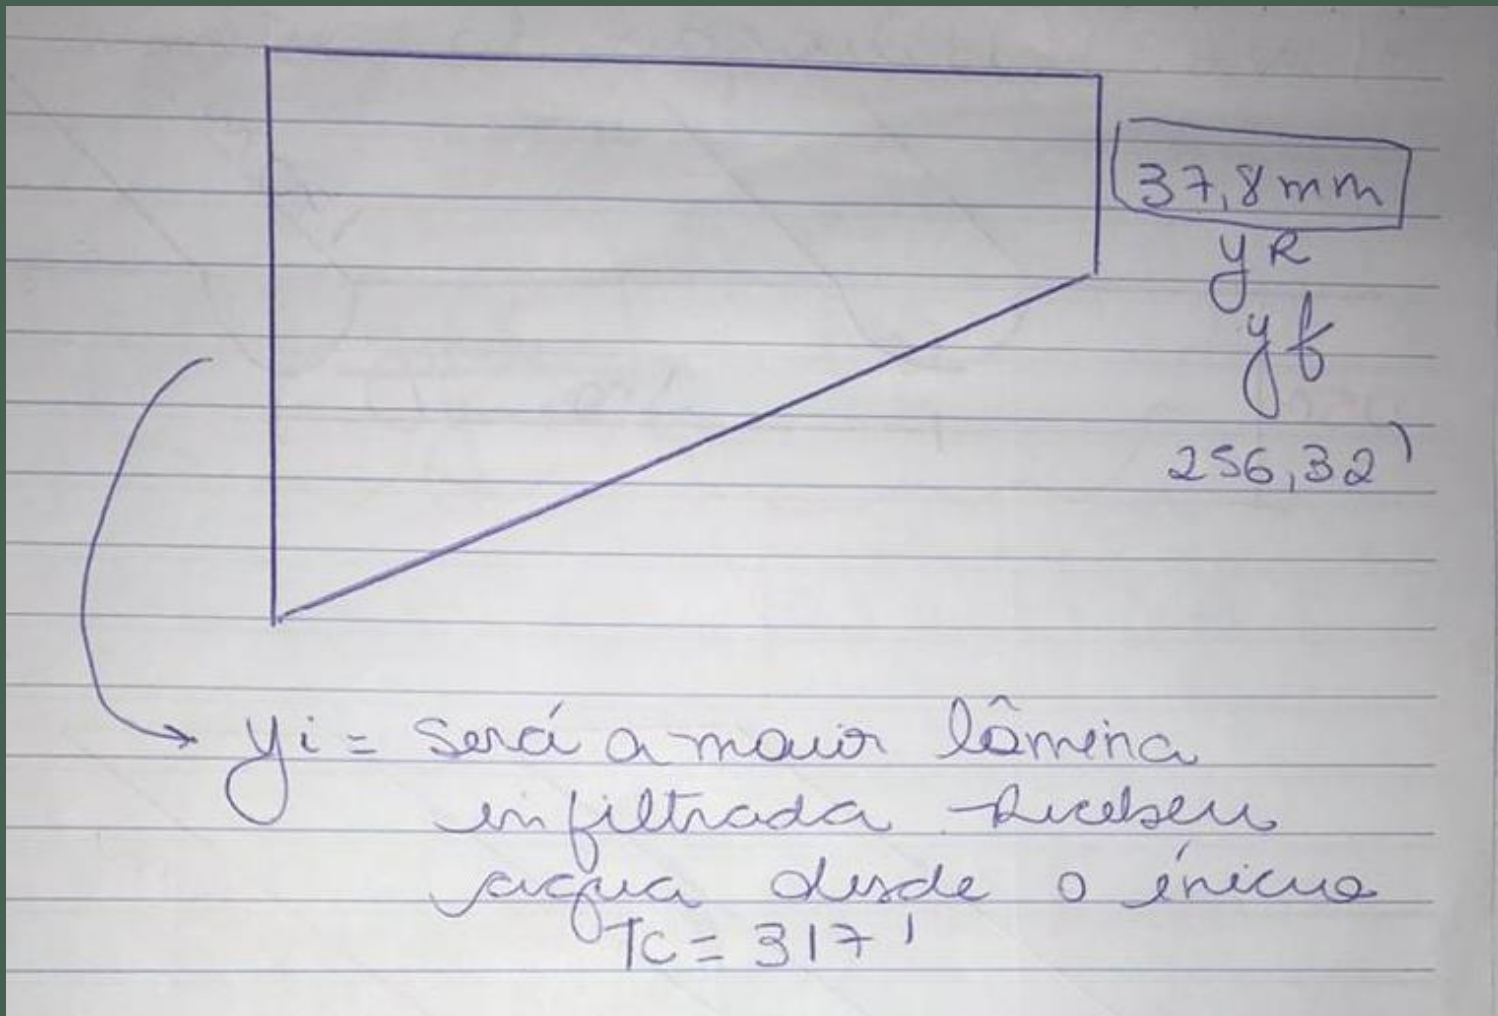 37,8mm
yR
yf
256,32'
yi = Será a maior lâmina
infiltrada Recebeu
água desde o início
Tc = 317'